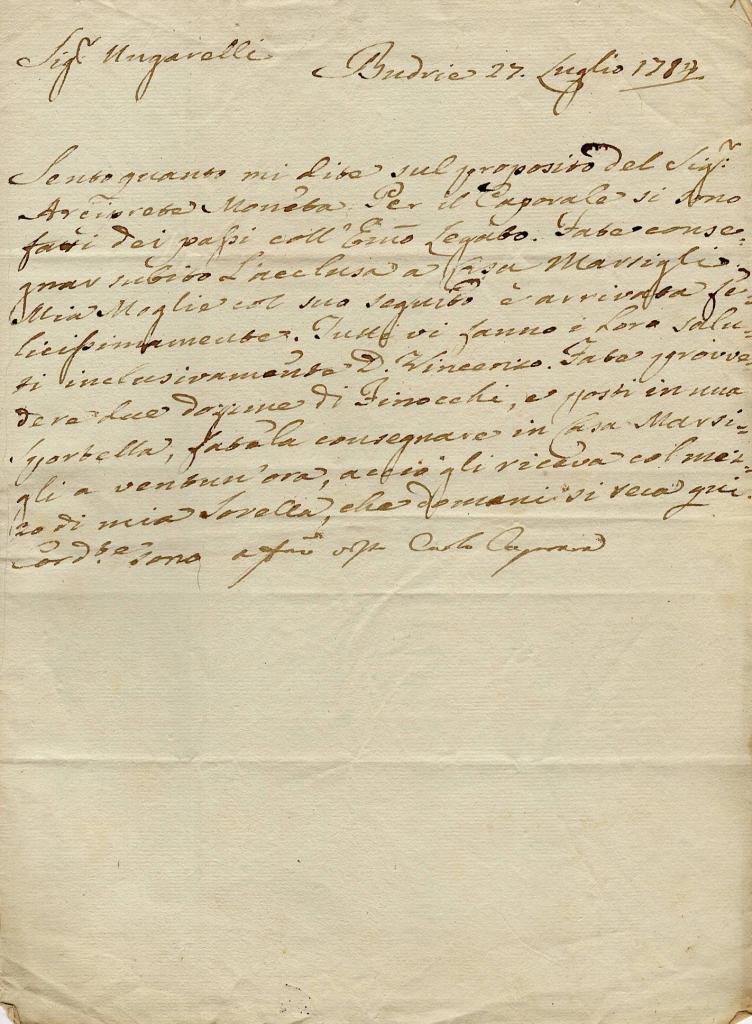 Sig.r Ungarelli
Budrie 27. Luglio 1787
Sento quanto mi dite sul proposito del Sig.r
Arciprete Moneta. Per il Caporale si sono
fatti dei passi coll' Emo Legato. Fate conse=
gnar subito l'acclusa a Casa Marsigli.
Mia Moglie col suo seguito è arrivata fe=
licissimamente. Tutti vi fanno i loro salu=
ti inclusivamente D. Vincenzo. Fate provve=
dere due dozzine di Finocchi, e posti in una
sportella, fatela consegnare in Casa Marsi=
gli a ventun'ora, acciò gli riceva col mez=
zo di mia Sorella, che domani si reca quì.
Cord.te sono Carlo Caprara